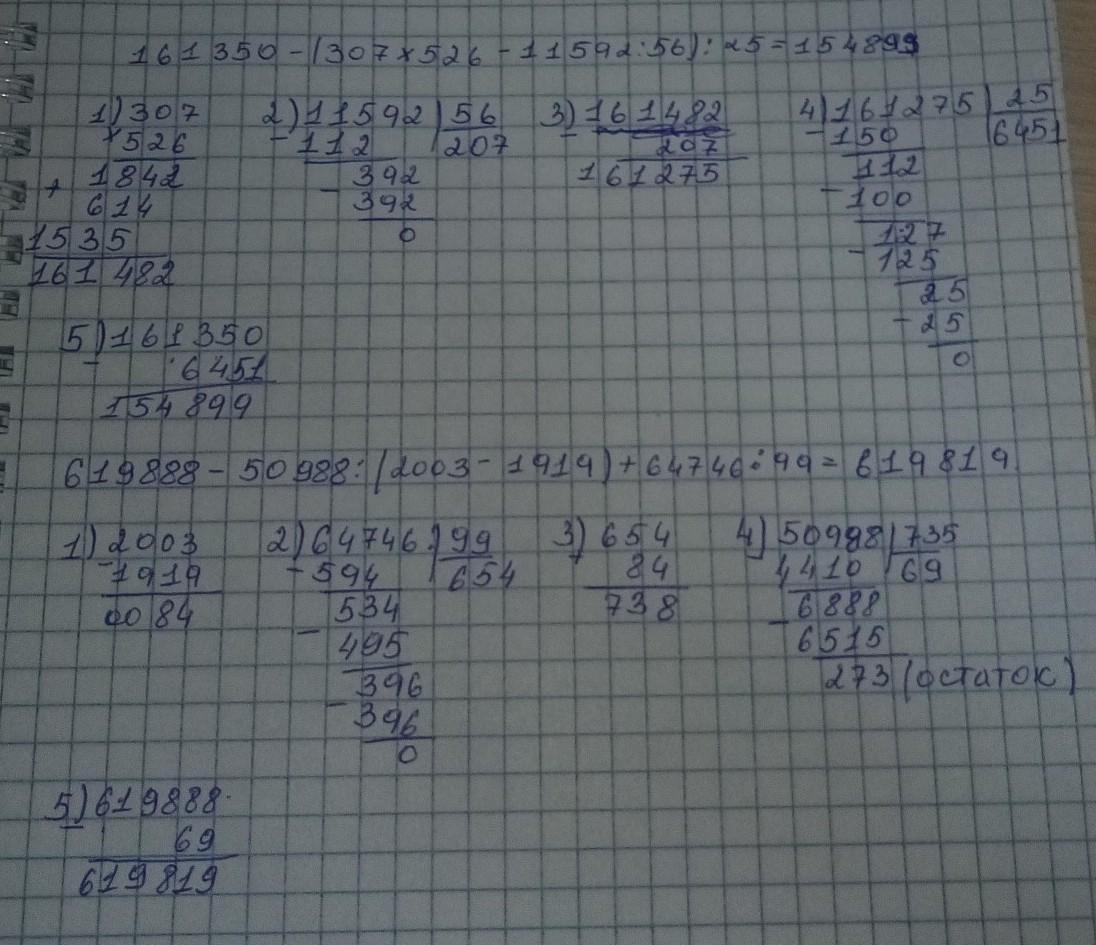 161350-(307×526-11592:56):25=154899
1) 307
×526
+ 1842
614
1535
161482
2) 11592 56
- 112 207
- 392
392
0
3) 161482
- 207
161275
4) 161275 25
- 150 6451
112
- 100
127
- 125
25
- 25
0
5) 161350
- 6451
154899
619888-50988:(2003-1919)+64746:99=619819
1) 2003
- 1919
0084
2) 64746 99
- 594 654
534
- 495
396
- 396
0
3) 654
84
738
4) 50998 735
4410 69
6888
- 6515
273 (остаток)
5) 619888
69
619819